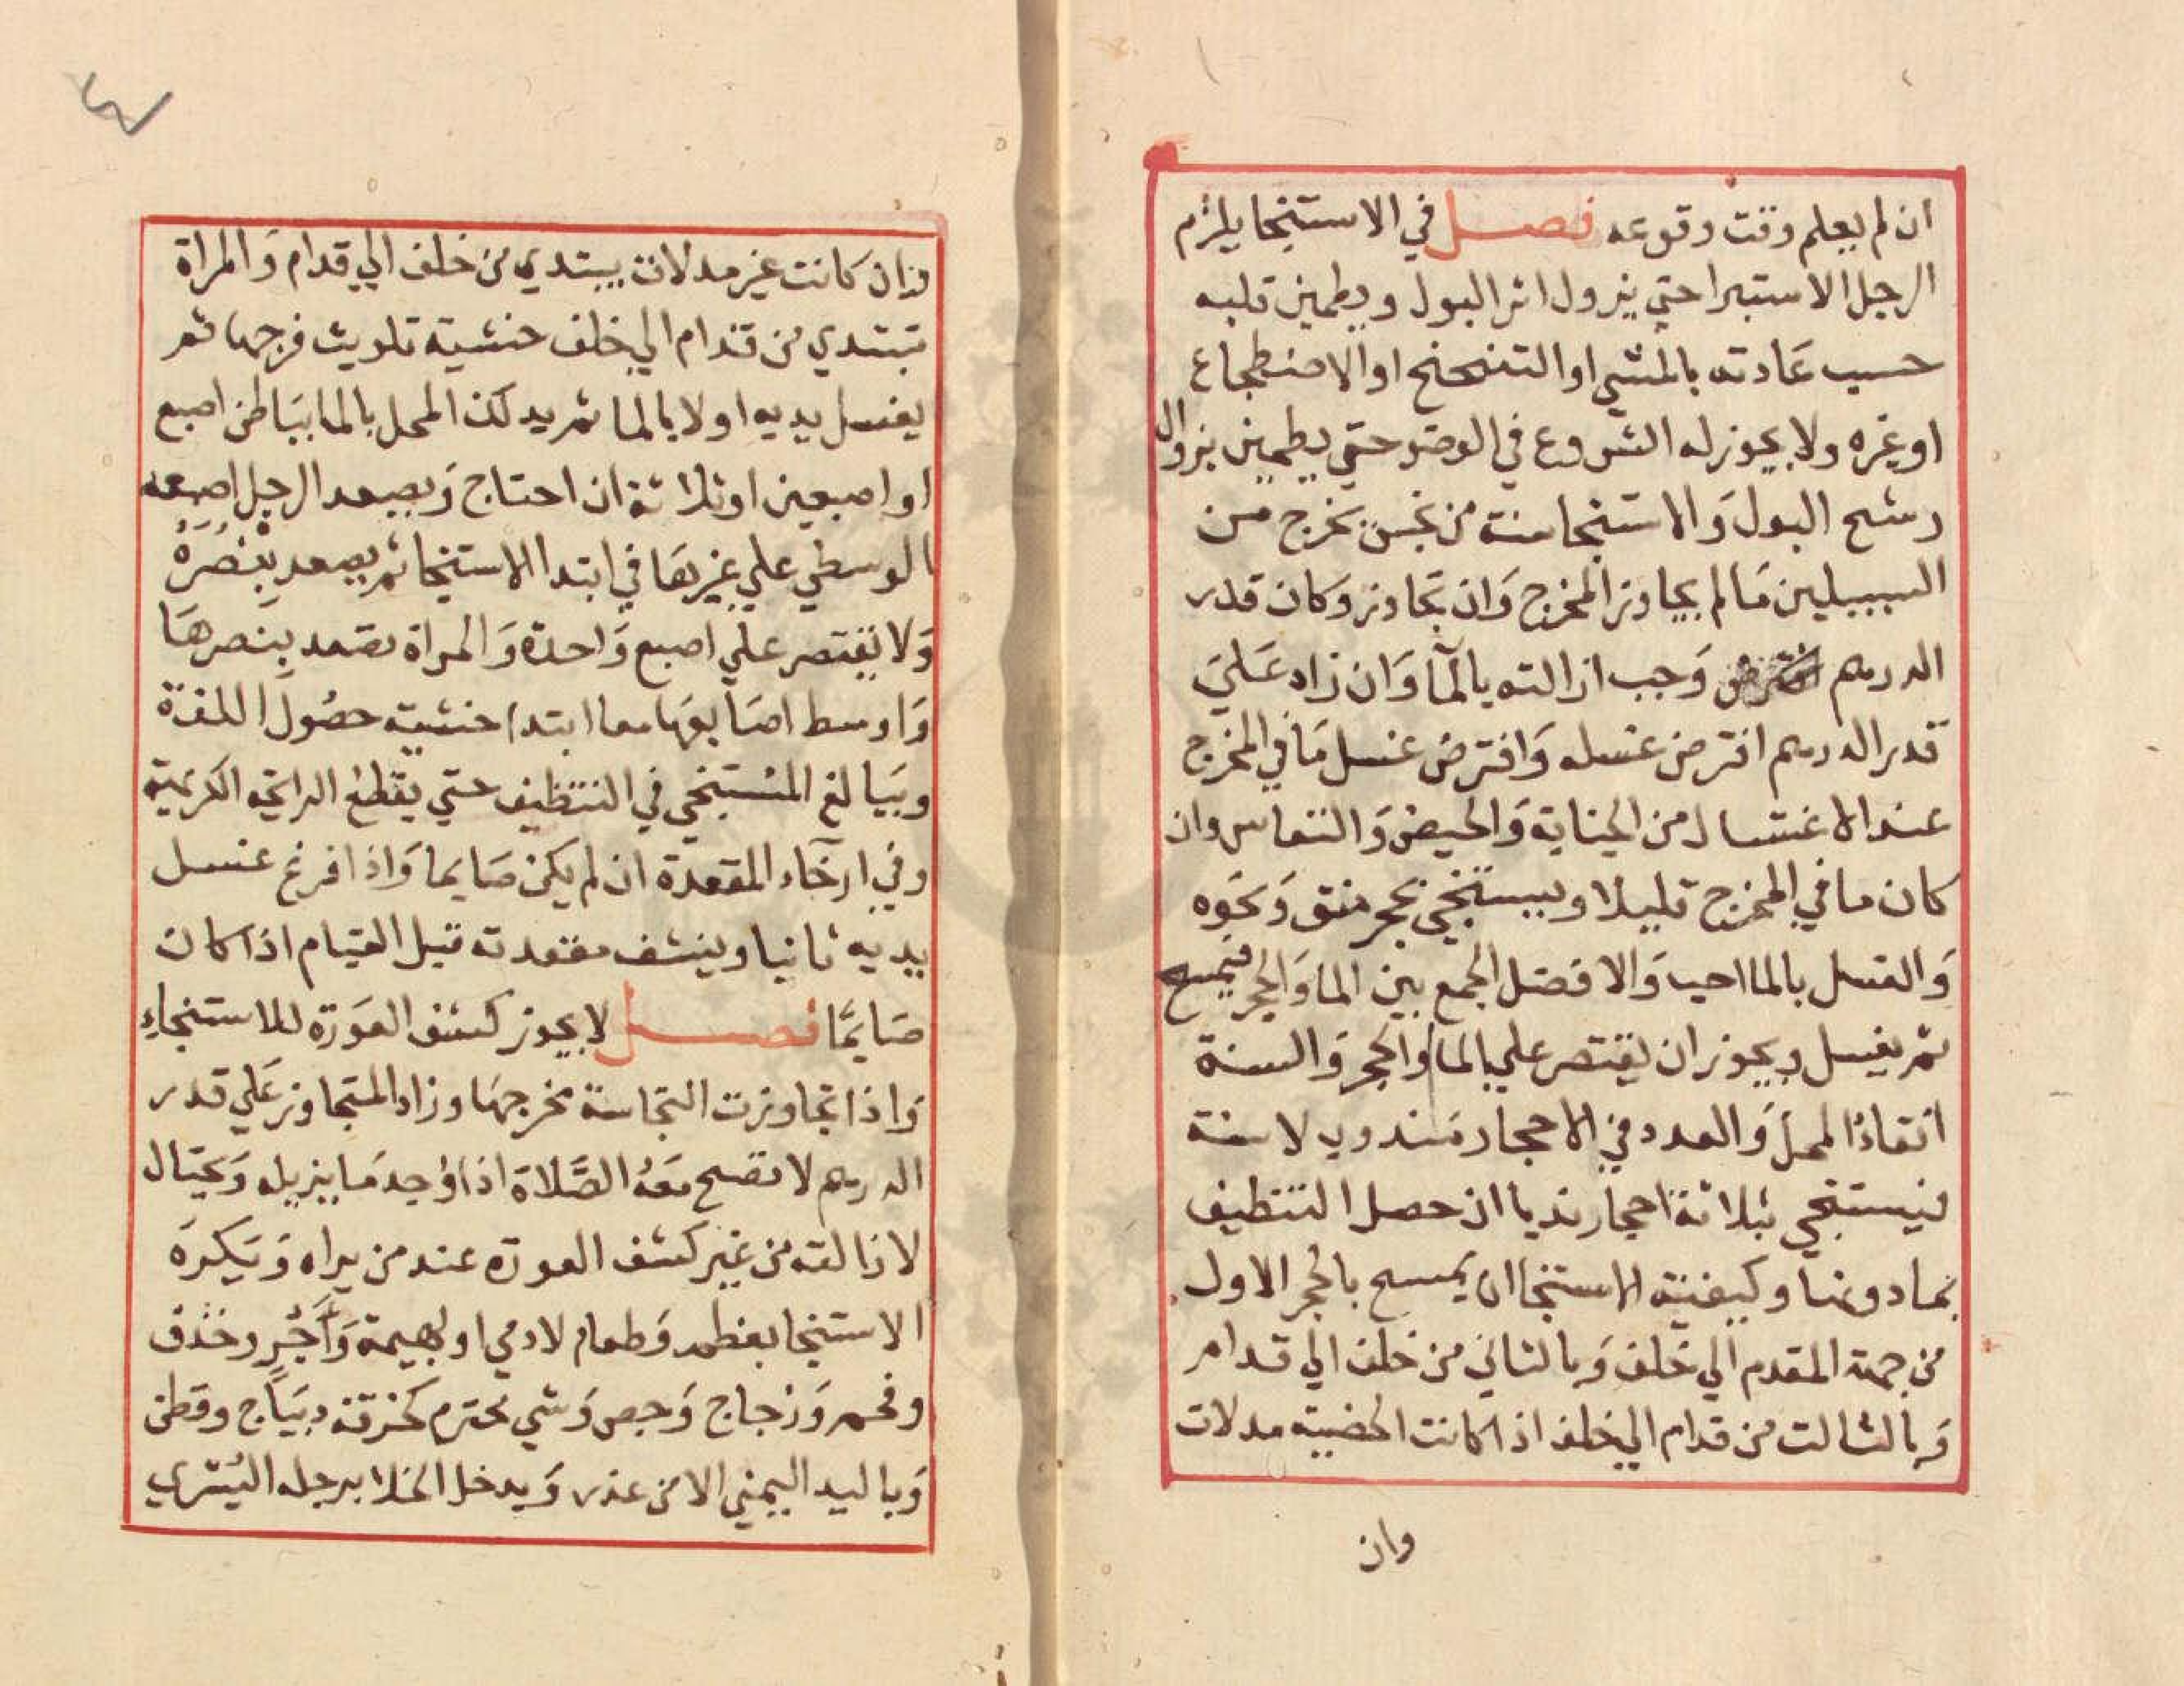 ان لم يعلم وقت وقوعه فصل في الاستنجا يلزم
الرجل الاستبرا حتي يزول اثر البول ويطمين قلبه
حسب عادته بالمشي او التنحنح او الاضطجاع
او غيره ولا يجوز له الشروع في الوضو حتي يطمين بزوال
رشح البول وَالاستنجا سنة من نجس يخرج من
السبيلين مَا لم يجاوز المخرج وَان تجاوز وكان قدر
الدرهم وَجب ازالته بالمآ وَان زاد عَليَ
قدر الدرهم افترض غسله وَافترض غسل مَا في المخرج
عند الاغتسال من الجنابة وَالحيض وَالنفاس وان
كان ما في المخرج قليلا ويستنجي بحجر منق وَنحوه
وَالغسل بالما احب وَالافضل الجمع بين الما وَالحجر فيمسح
ثم يغسل ويجوز ان يقتصر علي الما او الحجر وَالسنة
انقاءُ المحل وَالعدد في الاحجار مَندوب لا سنة
فيستنجي بثلاثة احجار ندبا ان حصل التنظيف
بما دونها وكيفية الاستنجا ان يمسح بالحجر الاول
من جهة المقدم الي خلف وَبالثاني من خلف الي قدام
وَبالثالت من قدام الي خلف اذا كانت الخصية مدلات
وان
وان كَانت غير مدلات يبتدي من خلف الي قدام وَالمراة
تبتدي من قدام الي خلف خشية تلويث فرجها ثم
يغسل يديه اولا بالما ثم يدلك المحل بالما ببَاطن اصبع
او اصبعين او ثلاثة ان احتاج وَيصعد الرجل اصبعه
الوسطي علي غيرهَا في ابتدا الاستنجا ثم يصعد بنْصُرَهُ
وَلا يقتصر علي اصبع وَاحدة وَالمراة تصعد بنَصرهَا
وَاوسط اصَابعهَا معا ابتدا خشية حصُول اللذة
ويبَالغ المسْتنجي في التنظيف حتي يقطع الرايحه الكريهة
وفي ارخَاء المقعدة ان لم يكن صَايما وَاذا فرغ غسل
يديه ثانيا وينشف مقعدته قبل القيام اذا كان
صَايمًا فصل لا يجوز كشف العوَرة للاستنجاء
وَاذا تجاوزت النجاسة مخرجهَا وزاد المتجاوز عَلي قدر
الدرهم لا تصح معَهُ الصَّلاة اذا وُجد مَا يزيله وَيحتَال
لازالته من غير كشف العورة عند من يراه وَيَكرَه
الاستنجا بعظم وَطعام لادمي او بهيمة وَآجُرٍ وخذف
وفحم وَزجاج وَجص وَشي محترم كخرقة ديبَاج وقطن
وَباليد اليمني الا من عذر وَيدخل الخلا برجله اليُسْري